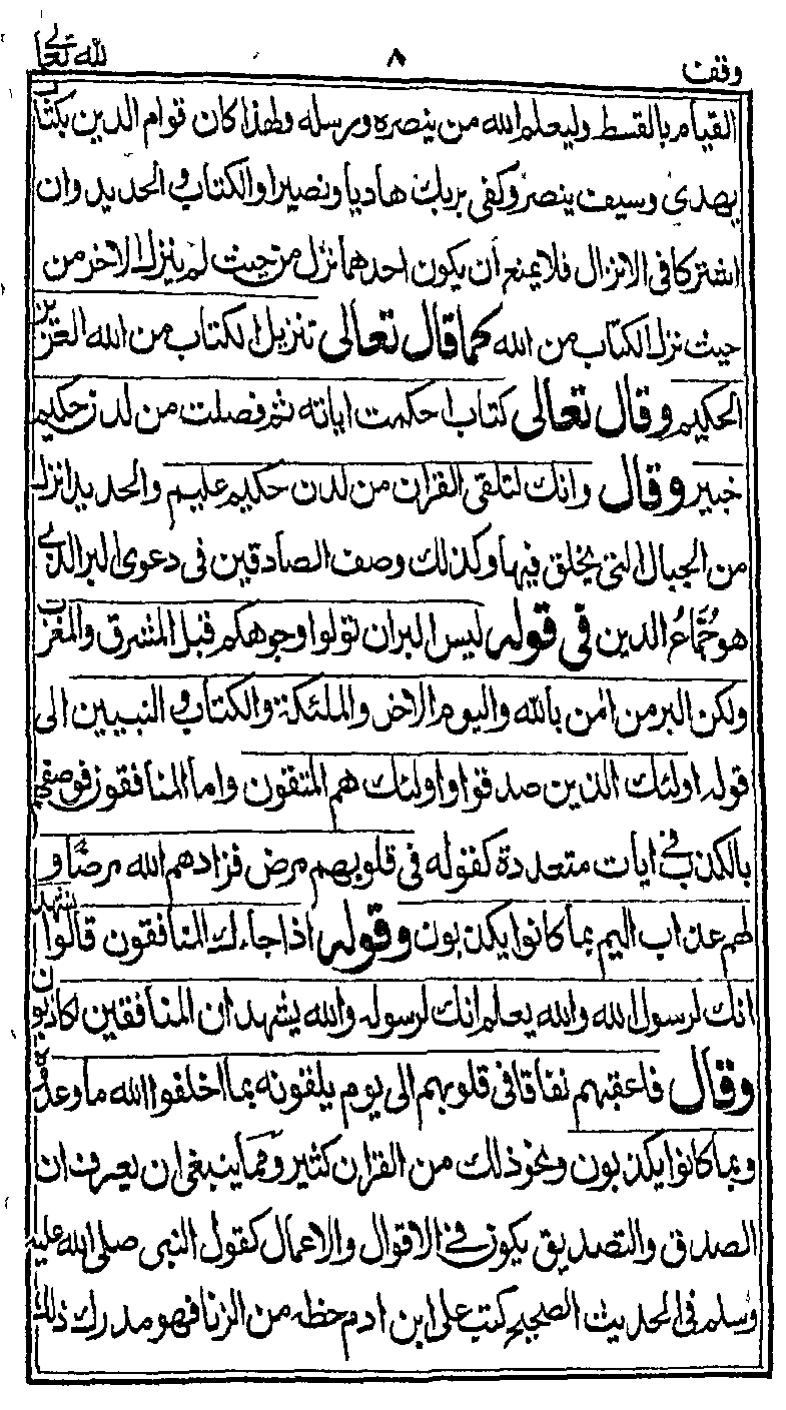 وقف ٨ لله تعالى
القيام بالقسط وليعلم الله من ينصره ورسله ولهذا كان قوام الدين بكتاب
يهدى وسيف ينصر وكفى بربك هاديا ونصيرا والكتاب والحديد وان
اشتركا فى الانزال فلا يمنع أن يكون احدهما نزل من حيث لم ينزل الاخر من
حيث نزل الكتاب من الله كما قال تعالى تنزيل الكتاب من الله العزيز
الحكيم وقال تعالى كتاب احكمت اياته ثم فصلت من لدن حكيم
خبير وقال وانك لتلقى القران من لدن حكيم عليم والحديد انزل
من الجبال التى يخلق فيها وكذلك وصف الصادقين فى دعوى البر الذى
هو جُمَّاعُ الدين فى قوله ليس البر ان تولوا وجوهكم قبل المشرق والمغرب
ولكن البر من امن بالله واليوم الاخر والملئكة والكتاب والنبيين الى
قوله اولئك الذين صدقوا واولئك هم المتقون واما المنافقون فوصفهم
بالكذب فى ايات متعددة كقوله فى قلوبهم مرض فزادهم الله مرضًا و
لهم عذاب اليم بما كانوا يكذبون وقوله اذا جاءك المنافقون قالوا نشهد
انك لرسول الله والله يعلم انك لرسوله والله يشهد ان المنافقين لكاذبون
وقال فاعقبهم نفاقا فى قلوبهم الى يوم يلقونه بما اخلفوا الله ما وعدوه
وبما كانوا يكذبون ونحو ذلك من القران كثير ومما ينبغى ان يعرف ان
الصدق والتصديق يكون فى الاقوال والاعمال كقول النبى صلى الله عليه
وسلم فى الحديث الصحيح كتب على ابن ادم حظه من الزنا فهو مدرك ذلك